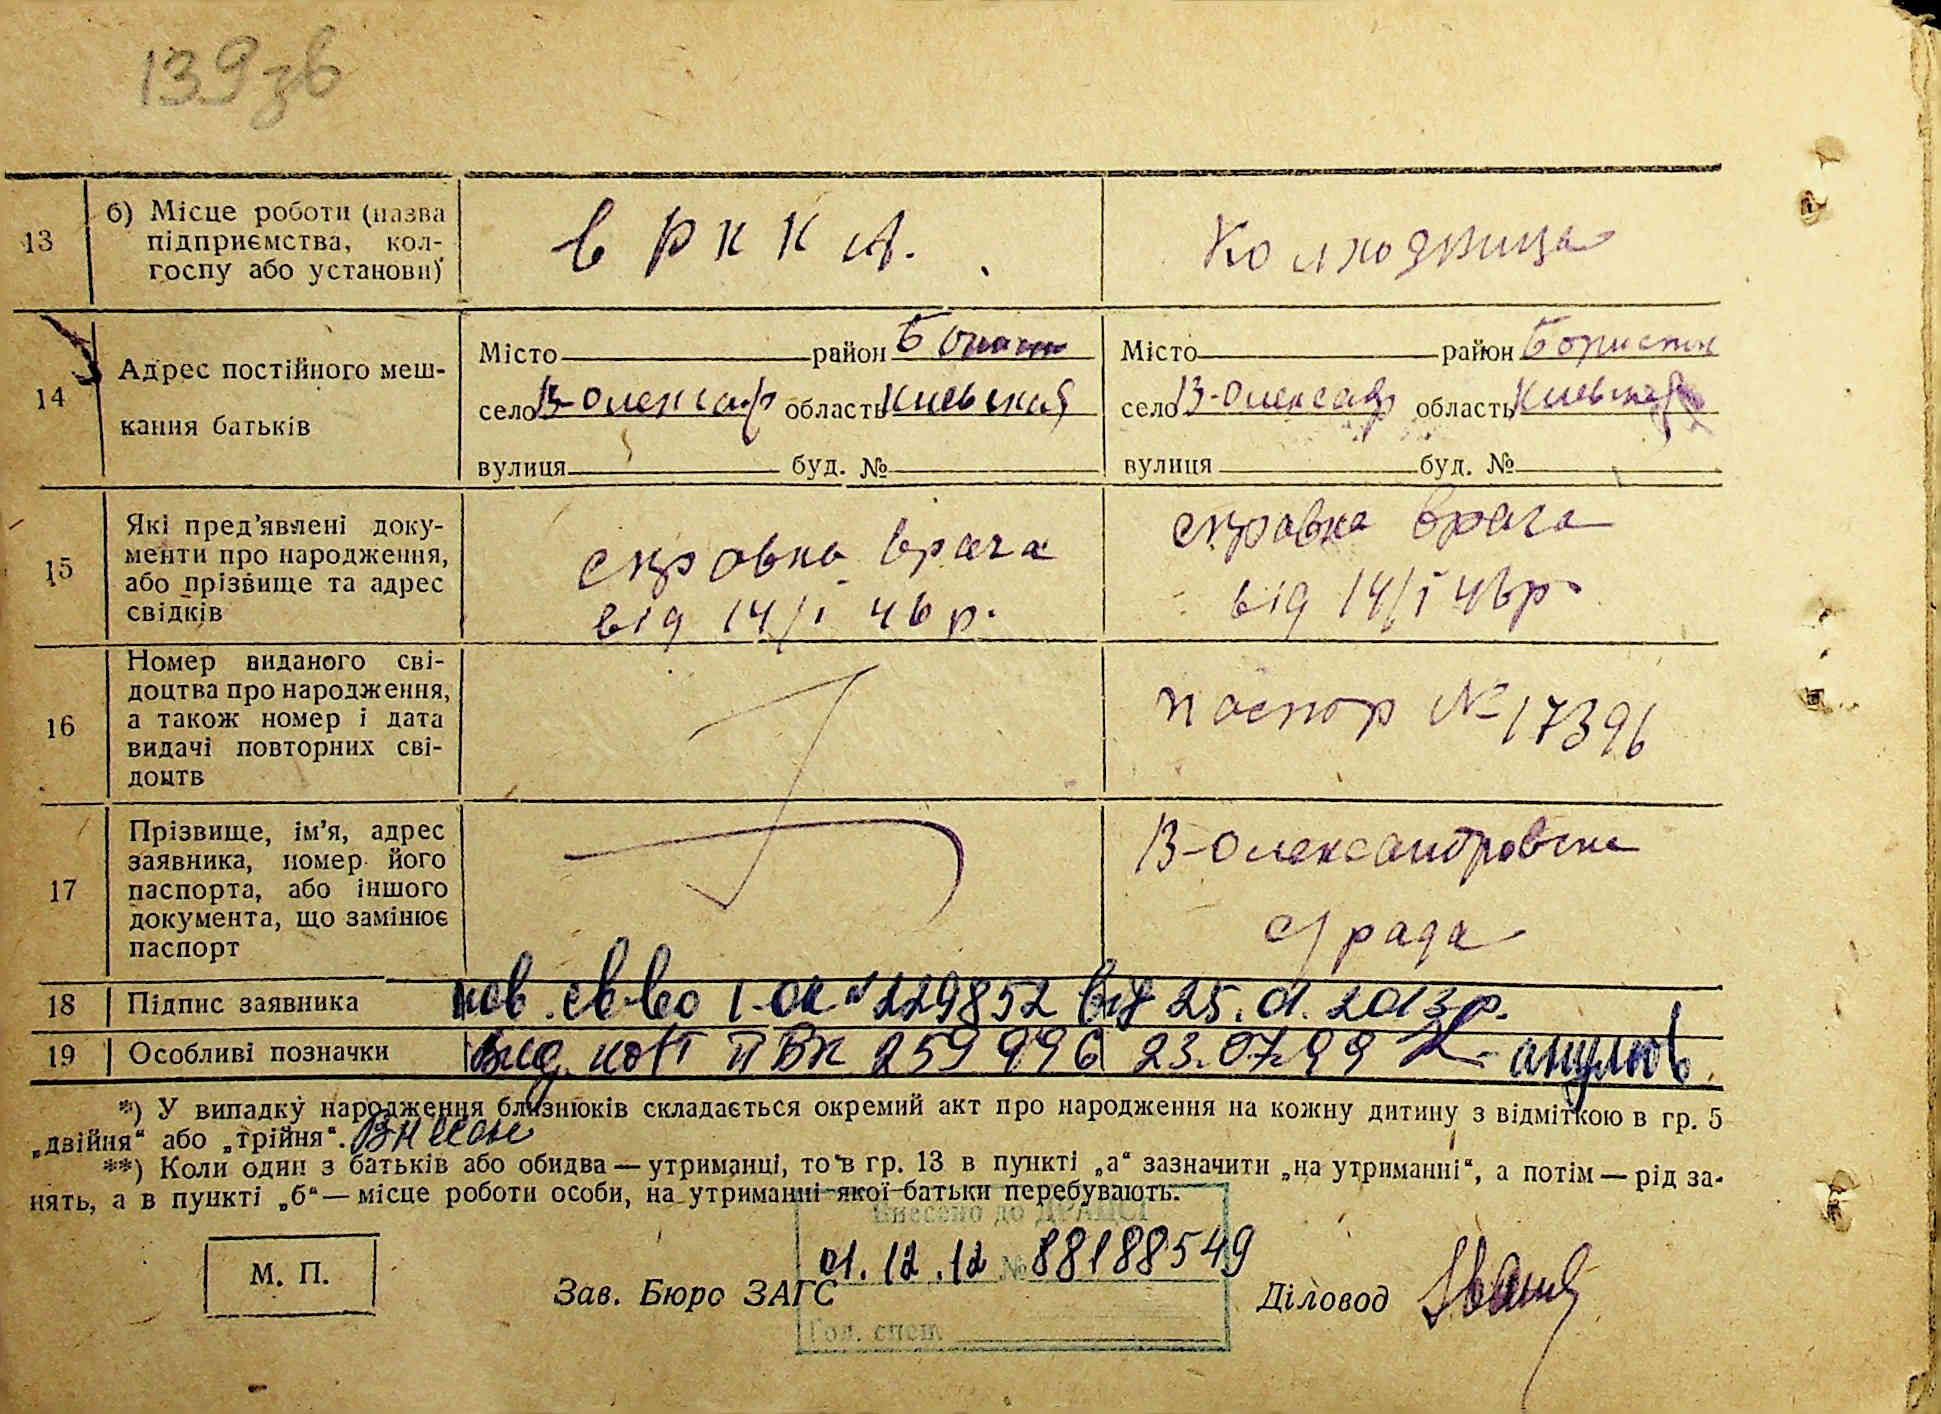 139зв
13
б) Місце роботи (назва
підприємства, кол-
госпу або установи)
в Р К К А.
Колхозница
14
Адрес постійного меш-
кання батьків
Місто район
село В-Олексадр область Киевская
вулиця буд. №
Місто район Бориспол
село В-Олексадр область Киевская
вулиця буд. №
15
Які пред'явлені доку-
менти про народження,
або прізвище та адрес
свідків
справка врача
від 14/I 46 р.
справка врача
від 14/I 46р.
16
Номер виданого сві-
доцтва про народження,
а також номер і дата
видачі повторних сві-
доцтв
паспор № 17396
17
Прізвище, ім'я, адрес
заявника, номер його
паспорта, або іншого
документа, що замінює
паспорт
В-Олександровска
с/рада
18 Підпис заявника
пов. св-во І-ОК № 229852 від 25.01.2013р.
19 Особливі позначки
вид. повт ІІ БК 259996 23.07.99 анулюв
*) У випадку народження близнюків складається окремий акт про народження на кожну дитину з відміткою в гр. 5
„двійня“ або „трійня“.
**) Коли один з батьків або обидва — утриманці, то в гр. 13 в пункті „а“ зазначити „на утриманні“, а потім — рід за-
нять, а в пункті „б“ — місце роботи особи, на утриманні якої батьки перебувають.
Внесено до ДРАЦСГ
01.12.12 № 88188549
М. П.
Зав. Бюро ЗАГС
Діловод
Гол. спец.